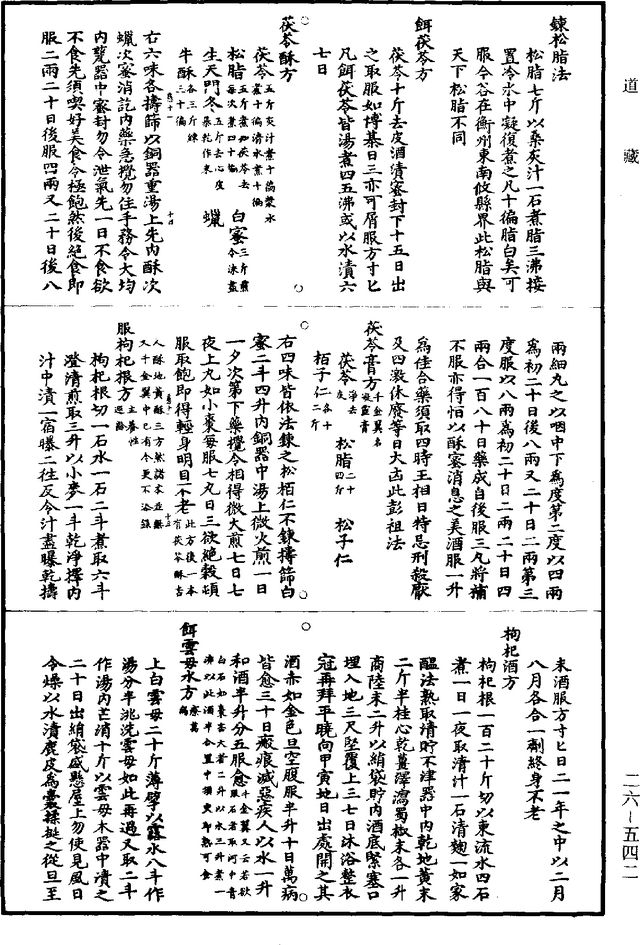 道藏
鍊松脂法
松脂七斤以桑灰汁一石煮脂三沸接
置冷水中凝復煮之凡十徧脂白矣可
服今谷在衡州東南攸縣界此松脂與
天下松脂不同
餌茯苓方
茯苓十斤去皮酒漬密封下十五日出
之取服如博棊日三亦可屑服方寸匕
凡餌茯苓皆湯煮四五沸或以水漬六
七日
茯苓酥方
茯苓五斤灰汁煮十徧漿水煮十徧清水煮十徧
松脂五斤煮如茯苓去每次煮四十徧
生天門冬五斤去心皮暴乾作末
牛酥三斤鍊三十徧
白蜜三斤煎令沫盡
蠟三斤鍊三十徧
右六味各擣篩以銅器重湯上先內酥次
蠟次蜜消訖內藥急攪勿住手務令大均
內甕器中密封勿令泄氣先一日不食欲
不食先須喫好美食令極飽然後絕食即
服二兩二十日後服四兩又二十日後八
兩細丸之以咽中下為度第二度以四兩
為初二十日後八兩又二十日二兩第三
度服以八兩為初二十日二兩二十日四
兩合一百八十日藥成自後服三丸將補
不服亦得恒以酥蜜消息之美酒服一升
為佳合藥須取四時王相日特忌刑殺厭
及四激休廢等日大凶此彭祖法
茯苓膏方千金翼名凝靈膏
茯苓淨去皮
松脂二十四斤
松子仁
柏子仁各十二斤
右四味皆依法鍊之松栢仁不鍊擣篩白
蜜二斗四升內銅器中湯上微火煎一日
一夕次第下藥攪令相得微火煎七日七
夜止丸如小棗每服七丸日三欲絕穀頓
服取飽即得輕身明目不老此方後一本有茯苓酥杏
人酥地黃酥三方然諸本並無又千金翼中已有今更不添錄
服枸杞根方主養性遐齡
枸杞根切一石水一石二斗煮取六斗
澄清煎取三升以小麥一斗乾淨擇內
汁中漬一宿曝二往反令汁盡曝乾擣
末酒服方寸匕日二一年之中以二月
八月各合一劑終身不老
枸杞酒方
枸杞根一百二十斤切以東流水四石
煮一日一夜取清汁一石漬麴一如家
醞法熟取清貯不津器中內乾地黃末
二斤半桂心乾薑澤瀉蜀椒末各一升
商陸末二升以絹袋貯內酒底緊塞口
埋入地三尺堅覆上三七日沐浴整衣
冠再拜平曉向甲寅地日出處開之其
酒赤如金色旦空腹服半升十日萬病
皆愈三十日瘢痕滅惡疾人以水一升
和酒半升分五服愈千金翼又云若欲服石者取河中青
白石如棗杏大者二升以水三升煮一沸以此酒半合置中須臾即熟可食
餌雲母水方療萬病
上白雲母二十斤薄擘以露水八斗作
湯分半洮洗雲母如此再過又取二斗
作湯內芒消十斤以雲母木器中漬之
二十日出絹袋盛懸屋上勿使見風日
令燥以水漬鹿皮為囊揉挻之從旦至
二六～五四二